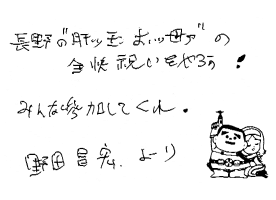 長野の"肝ッ玉おッ母ァ"の
全快祝いをやろう!
みんな参加してくれ。
野田昌宏より